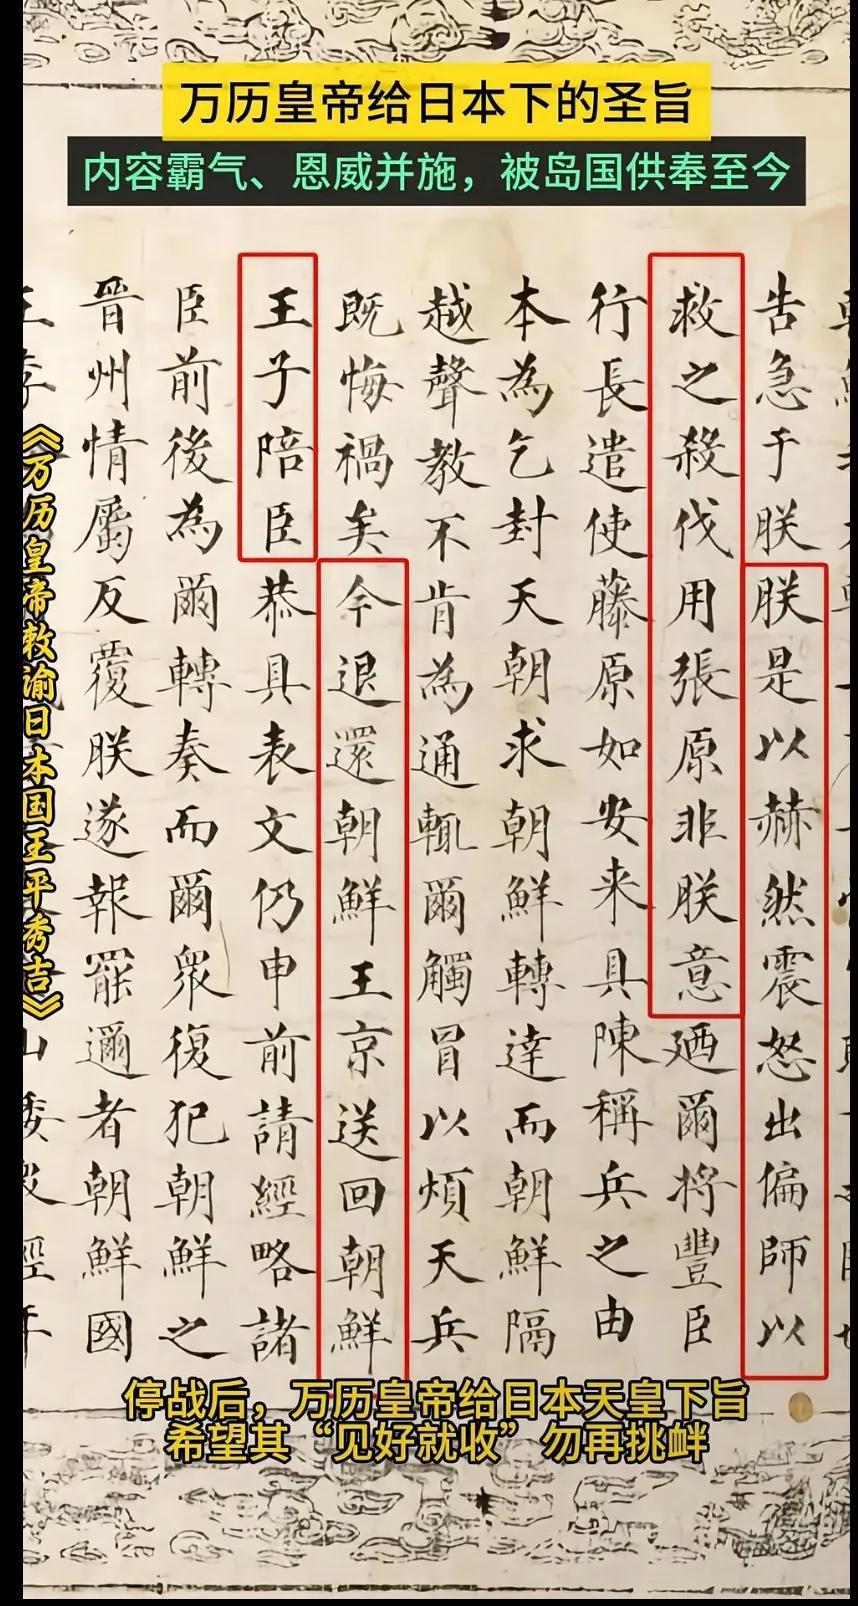 万历皇帝给日本下的圣旨
内容霸气、恩威并施，被岛国供奉至今
告急于朕朕是以赫然震怒出偏師以
救之殺伐用張原非朕意廼爾将豐臣
行長遣使藤原如安来具陳稱兵之由
本為乞封天朝求朝鮮轉達而朝鮮隔
越聲教不肯為通輒爾觸冒以煩天兵
既悔禍矣今退還朝鮮王京送回朝鮮
王子陪臣恭具表文仍申前請經略諸
臣前後為爾轉奏而爾衆復犯朝鮮之
晉州情屬反覆朕遂報罷邇者朝鮮國
《万历皇帝敕谕日本国王平秀吉》
停战后，万历皇帝给日本天皇下旨
希望其“见好就收”勿再挑衅